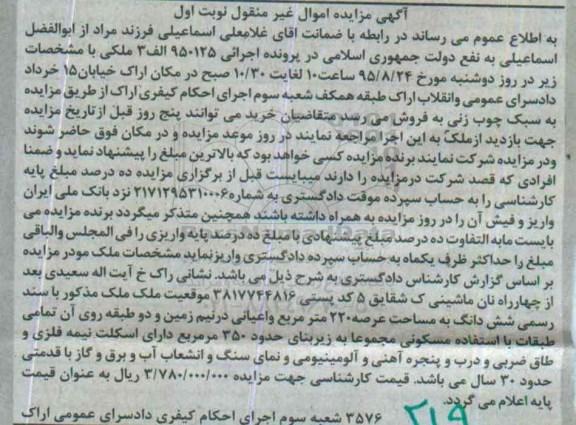 آگهی مزایده اموال غیر منقول نوبت اول
به اطلاع عموم می رساند در رابطه با ضمانت اقای غلامعلی اسماعیلی فرزند مراد از ابوالفضل
اسماعیلی به نفع دولت جمهوری اسلامی در پرونده اجرائی ۹۵۰۱۲۵ الف۳ ملکی با مشخصات
زیر در روز دوشنبه مورخ ۹۵/۸/۲۴ ساعت۱۰ لغایت ۱۰/۳۰ صبح در مکان اراک خیابان۱۵ خرداد
دادسرای عمومی وانقلاب اراک طبقه همکف شعبه سوم اجرای احکام کیفری اراک از طریق مزایده
به سبک چوب زنی به فروش می رسد متقاضیان خرید می توانند پنج روز قبل ازتاریخ مزایده
جهت بازدید ازملک به این اجرا مراجعه نمایند در روز موعد مزایده و در مکان فوق حاضر شوند
ودر مزایده شرکت نمایند برنده مزایده کسی خواهد بود که بالاترین مبلغ را پیشنهاد نماید و ضمنا
افرادی که قصد شرکت درمزایده را دارند میبایست قبل از برگزاری مزایده ده درصد مبلغ پایه
کارشناسی را به حساب سپرده موقت دادگستری به شماره۲۱۷۱۲۹۵۳۱۰۰۰۶ نزد بانک ملی ایران
واریز و فیش آن را در روز مزایده به همراه داشته باشند همچنین متذکر میگردد برنده مزایده می
بایست مابه التفاوت ده درصد مبلغ پیشنهادی با مبلغ ده درصد پایه واریزی را فی المجلس والباقی
مبلغ را حداکثر ظرف یکماه به حساب سپرده دادگستری واریزنماید مشخصات ملک مودر مزایده
بر اساس گزارش کارشناس دادگستری به شرح ذیل می باشد. نشانی راک خ آیت اله سعیدی بعد
از چهارراه نان ماشینی ک شقایق ۵ کد پستی ۳۸۱۷۷۴۴۸۱۶ موقعیت ملک ملک مذکور با سند
رسمی شش دانگ به مساحت عرصه۲۲۰ متر مربع واعیانی درنیم زمین و دو طبقه روی آن تمامی
طبقات با استفاده مسکونی مجموعا به زیربنای حدود ۳۵۰ مرمربع دارای اسکلت نیمه فلزی و
طاق ضربی و درب و پنجره آهنی و آلومینیومی و نمای سنگ و انشعاب آب و برق و گاز با قدمتی
حدود ۳۰ سال می باشد. قیمت کارشناسی جهت مزایده ۳/۷۸۰/۰۰۰/۰۰۰ ریال به عنوان قیمت
پایه اعلام می گردد.
۳۵۷۶ شعبه سوم اجرای احکام کیفری دادسرای عمومی اراک
۲۱۹